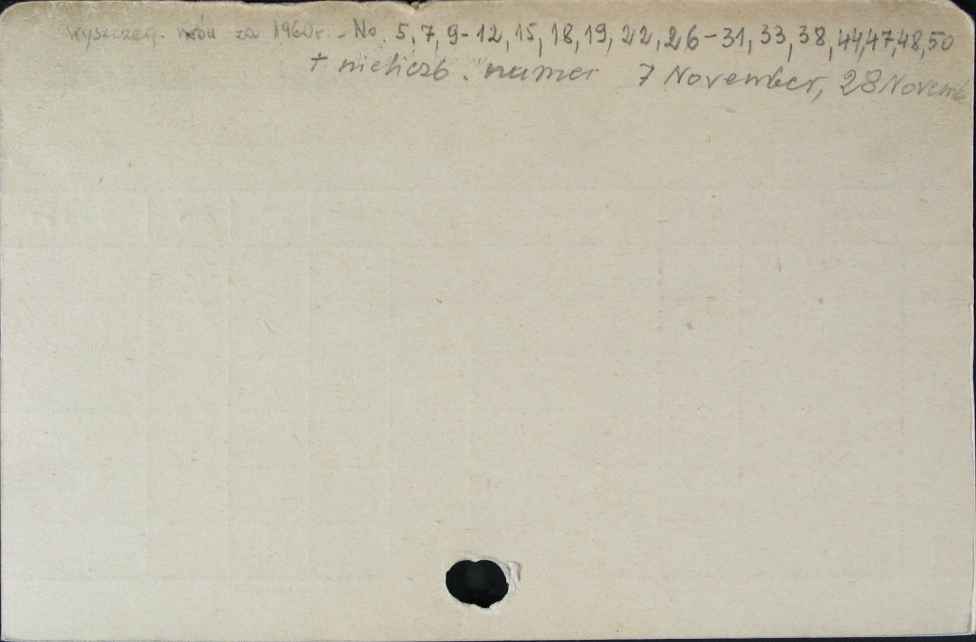 wyszczeg. nrów za 1960r. - No. 5,7,9-12,15,18,19,22,26-31,33,38,44,47,48,50
+ nieliczb. numer 7 November, 28 Novemb